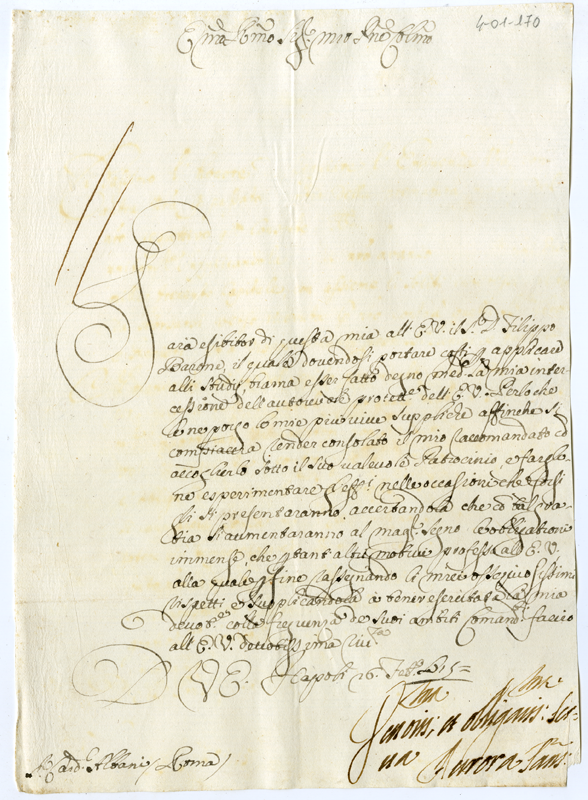 4-01-170
Em̃o Rm̃o Sig.r mio P̃ne Colm̃o
Sarà esibitor di questa mia all'E.V. il S.r D. Filippo
Barone, il quale dovendosi portare costì p applicare
alli Studij, brama esser fatto degno med.te la mia inter-
cessione dell'autorevole protett.e dell'E.V. Perloche
ne porgo le mie più vive suppliche affinche si
compiaccia render consolato il mio raccomandato cō
accoglierlo sotto il suo valevole Patrocinio, e farglie
ne esperimentare gl'effi nelle occasioni che costì
li si presentaranno, accertandola che cō tal gra-
tia s'aumentaranno al magg.r segno l'obligationi
immense che p tant'altri motivi professo all'E.V.
alla quale p fine rassegnando li miei ossequiosissimi
rispetti e supplicandola à tener esercitata la mia
devot.ne colla frequenza de suoi ambiti comandi faccio
all'E.V. devotissima riv.za
D V E. Napoli 16 Feb.o
Aurora San:
S. Card. Albani / Roma /